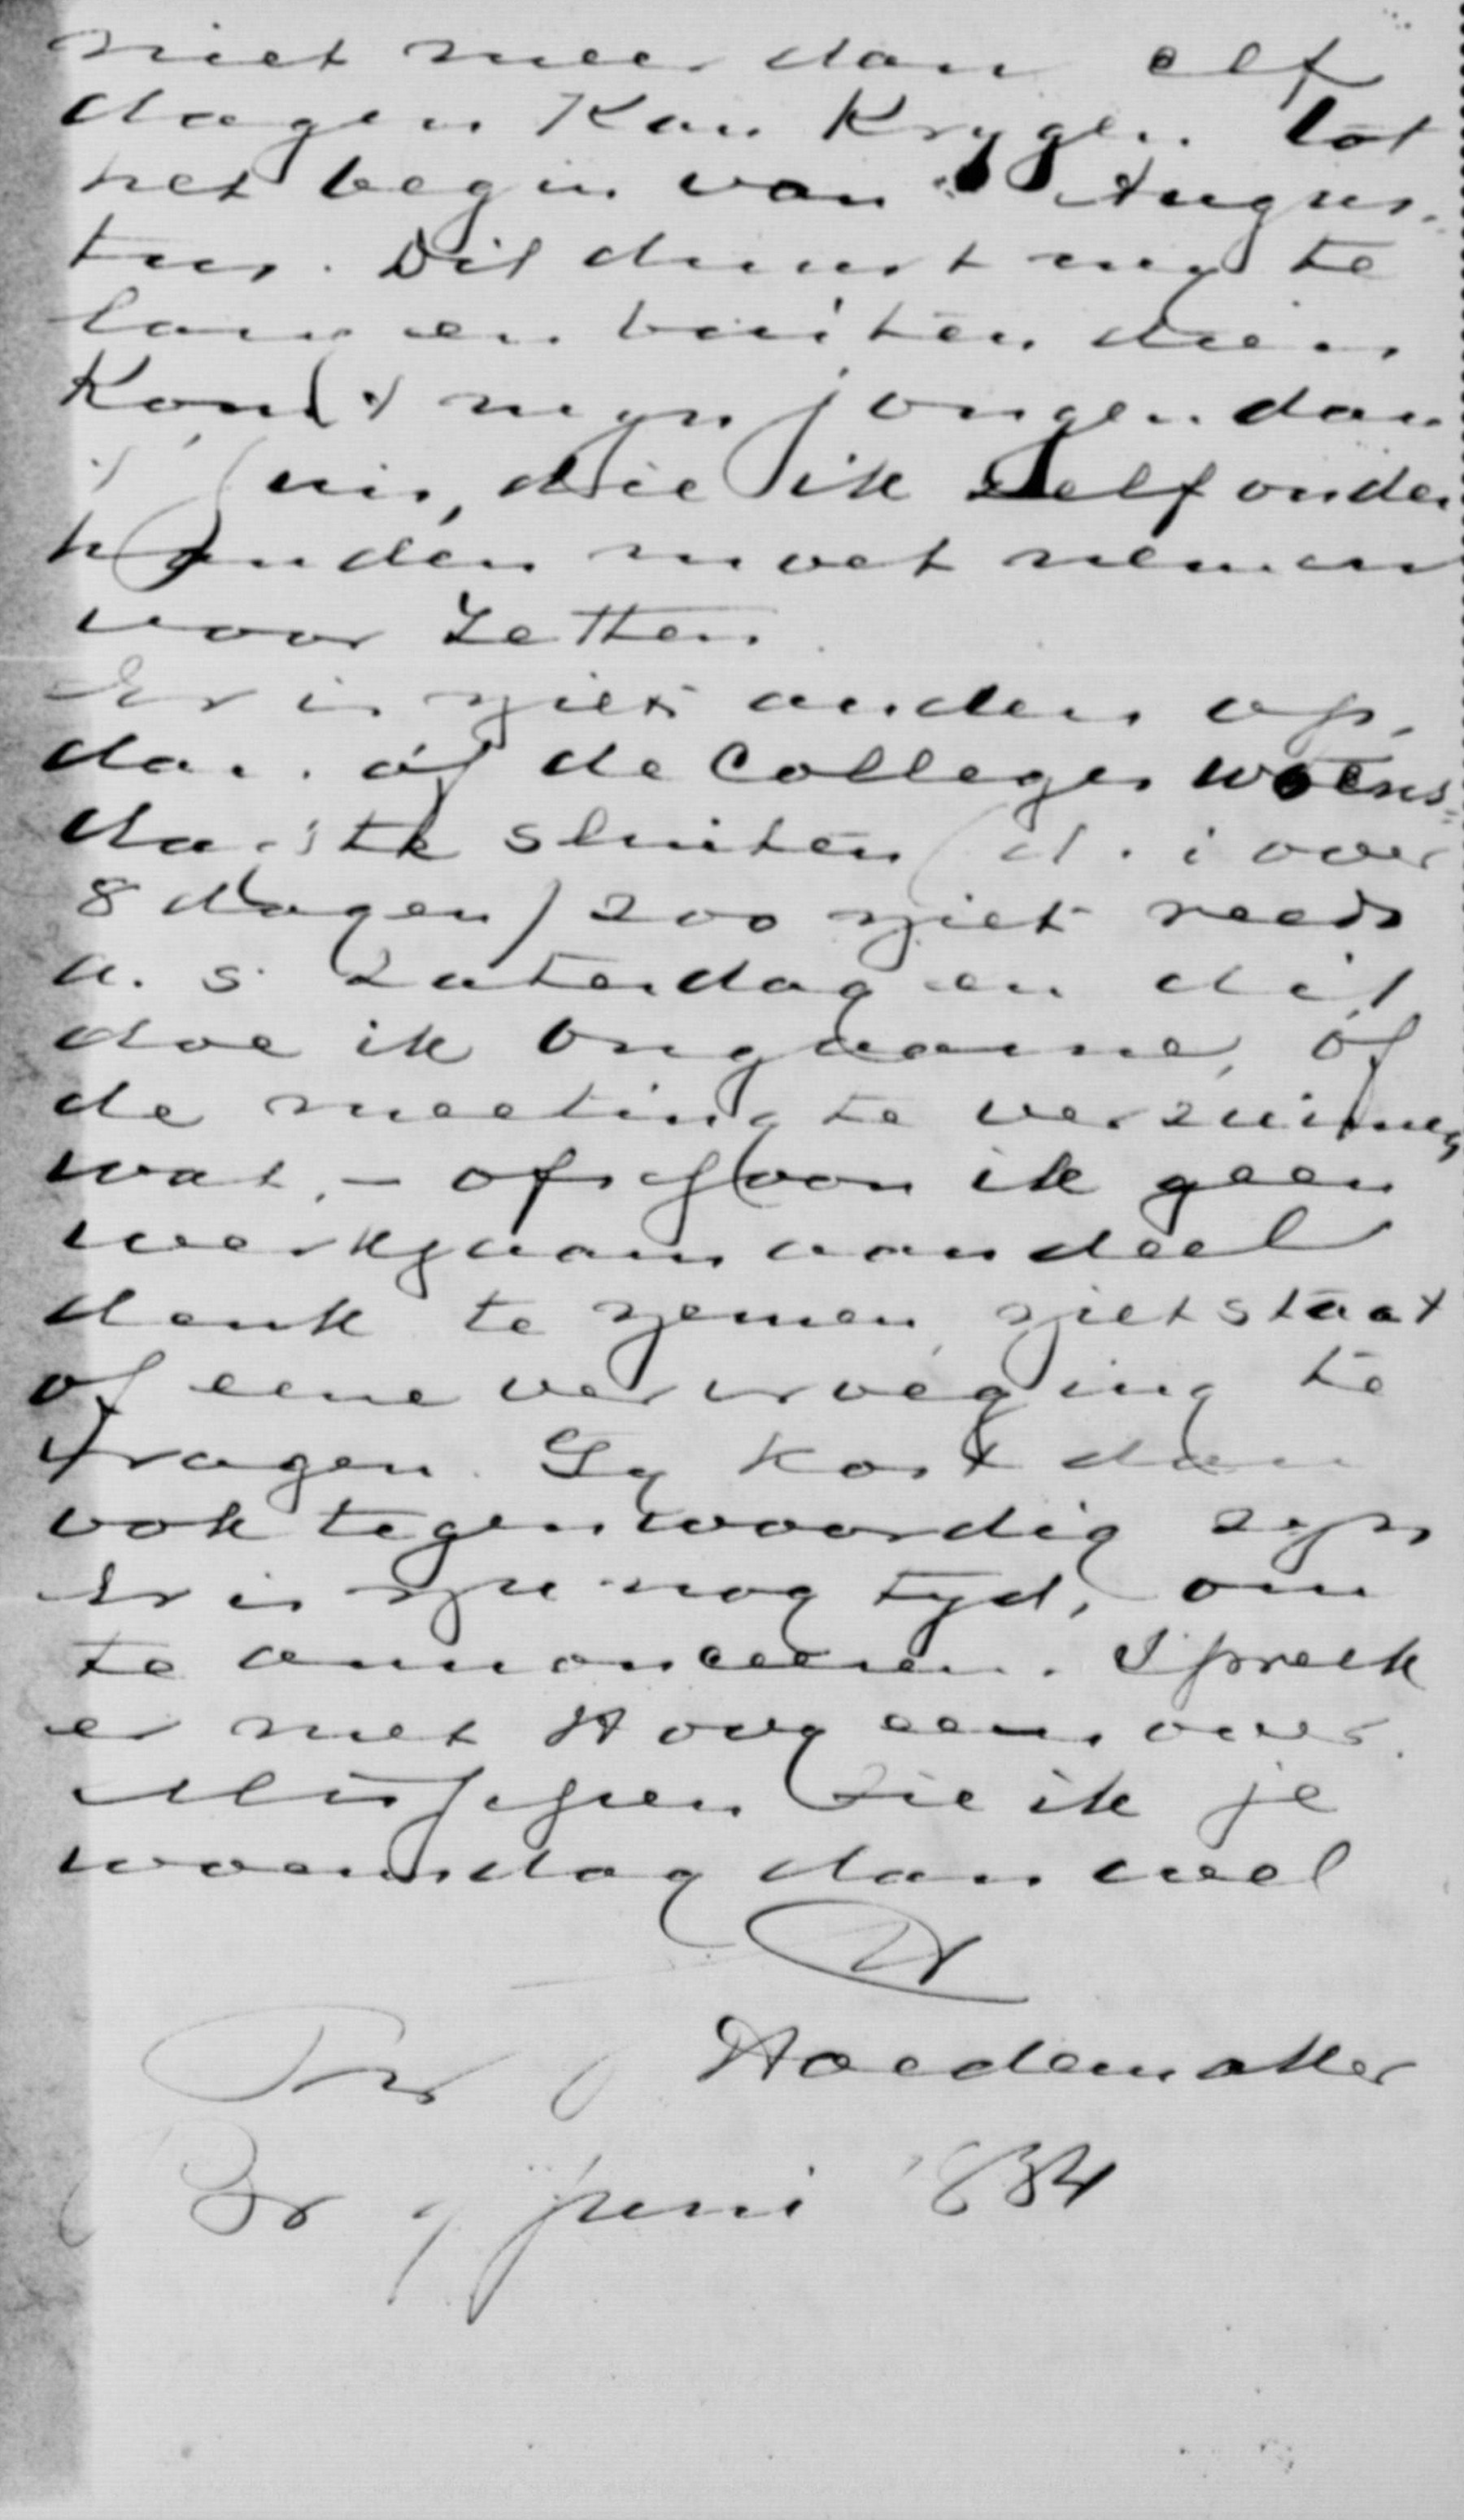 niet meer dan elf
dagen kan krygen tot
het begin van Augus-
tus. Dit duurt my te
lang en buiten dien
komt myn jongen dan
't huis, die ik zelf onder
handen moet nemen
voor Letten.
Er is niets anders op,
dan. óf de Colleges woens-
dag te sluiten (d. i over
8 dagen) zoo niet reeds
a. s. Zaterdag en dit
doe ik ongaarne, óf
de meeting te verzuimen,
wat, – ofschoon ik geen
werkzaam aandeel
denk te nemen, niet staat
of eene vervroeging te
vragen. Gy kost dan
ook tegenwoordig zyn
Er is nu nog tyd, om
te annonceeren. Spreek
er met Hovy eens over.
Misschien zie ik je
woensdag dan wel
tt
Hoedemaker
9 Juni 1884